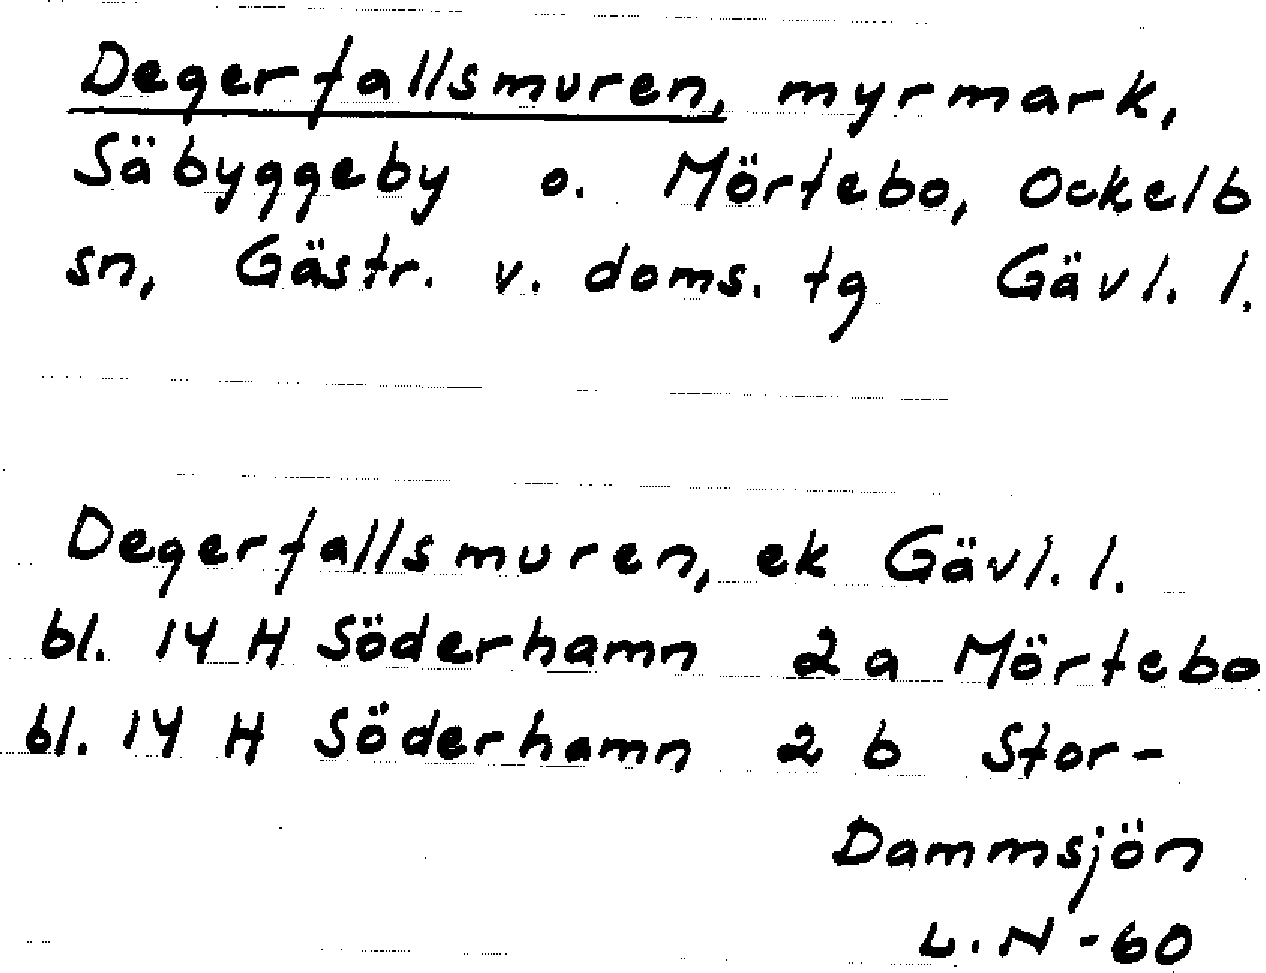 Degerfallsmuren, myrmark,
Säbyggeby o. Mörtebo, Ockelb
sn, Gästr. v. doms. tg Gävl. l.
Degerfallsmuren, ek Gävl. l.
bl. 14 H Söderhamn 2 a Mörtebo
bl. 14 H Söderhamn 2 b Stor-
Dammsjön
L. N - 60